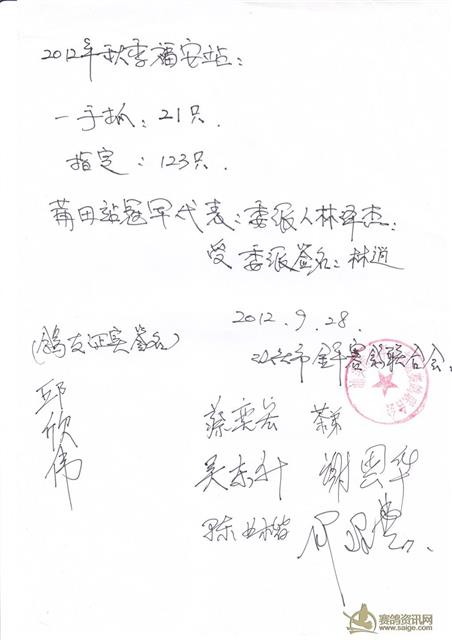 2012年秋季福安站:
一手抓:21只.
指定:123只.
莆田站冠军代表:委派人林泽杰:
受委派签名:林逍
2012.9.28.
(鸽友证实签名)
市金华赛鸽联合会.
邱欣伟
吴东升 谢国华
赛鸽资讯网
www.saige.com